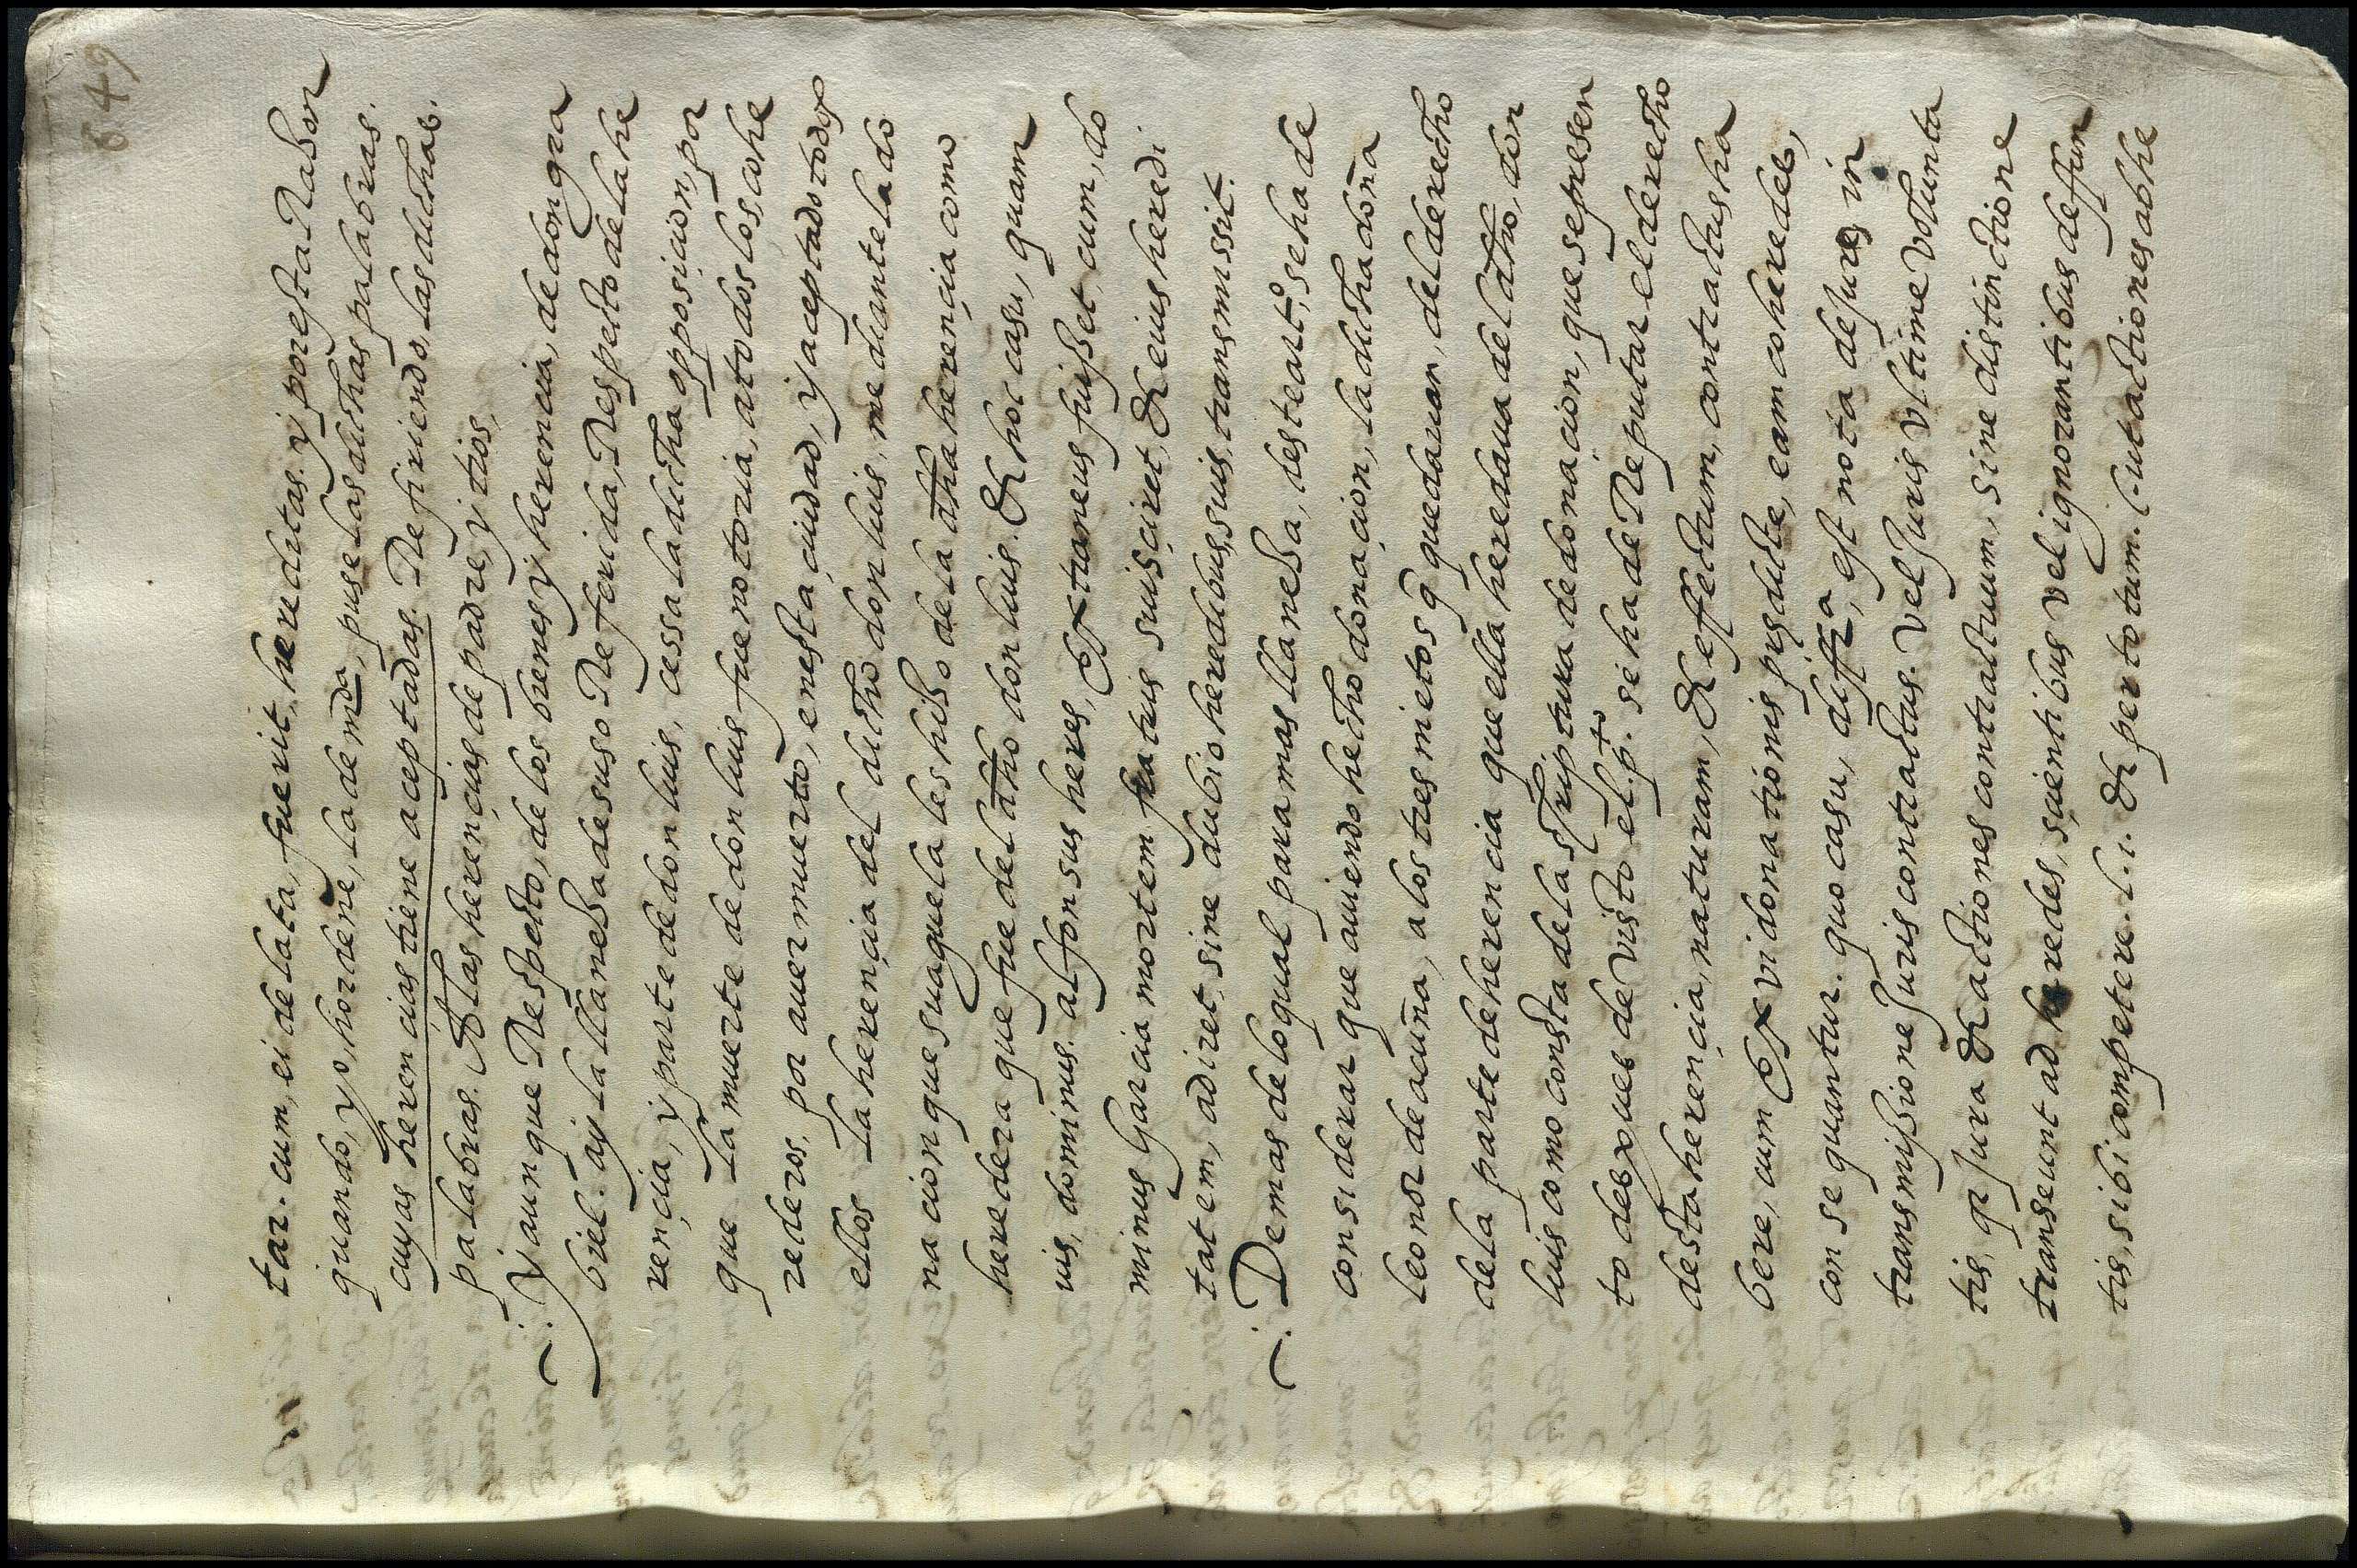 649
tar. cum, ei delata, fuerit, hereditas. y por esta Rason
quando, yo, hordene, la dem^da, puse las dichas palabras.
cuyas herencias tiene aceptadas. Refiriendo, las dichas.
palabras. A las herencias de padre, y tios,
y aunque Respecto, de los bienes y herencia, de don gra
biel. ay la llaneßa de suso Referida, Respecto de la he
rencia, y parte de don luis, cessa la dicha opposicion, por
que la muerte de don luis fue notoria, a todos los, cohe
rederos. por aver muerto, en esta ciudad, y aceptado todos
ellos la herençia del dicho don luis, mediante la do
nacion que su aguela les hißo de la dha herençia como
heredera que fue del dho don luis. & hoc casu, quam
uis, dominus. alfonsus heres, extraneus fuißet, cum, do
minus Garcia mortem fratris sui sciret, & eius heredi
tatem, adiret, sine dubio heredibus, suis, transmissit.
Demas de lo qual para mas llaneßa, deste art^o, se ha de
considerar que aviendo hecho donaçion, la dicha doña
leonor de acuña, a los tres nietos q quedavan, del derecho
de la parte de herencia que ella heredava del dho, don
luis como consta de la scriptura de donaçion, que se presen
to despues de visto el p^to. se ha de Reputar el derecho
desta herençia, naturam, & effectum, contractus ha
bere, cum ex vi donationis pisdicte, eam coheredes,
consequantur. quo casu, diffr^a, est nota de jure, in
transmißione juris contractus. vel juris ultime volunta
tis, qr jura & actiones contractuum, sine distinctione
transeunt ad heredes, scientibus vel ignorantibus deffun
tis, sibi competere. l. i. & per totum. l. ut actiones ab he